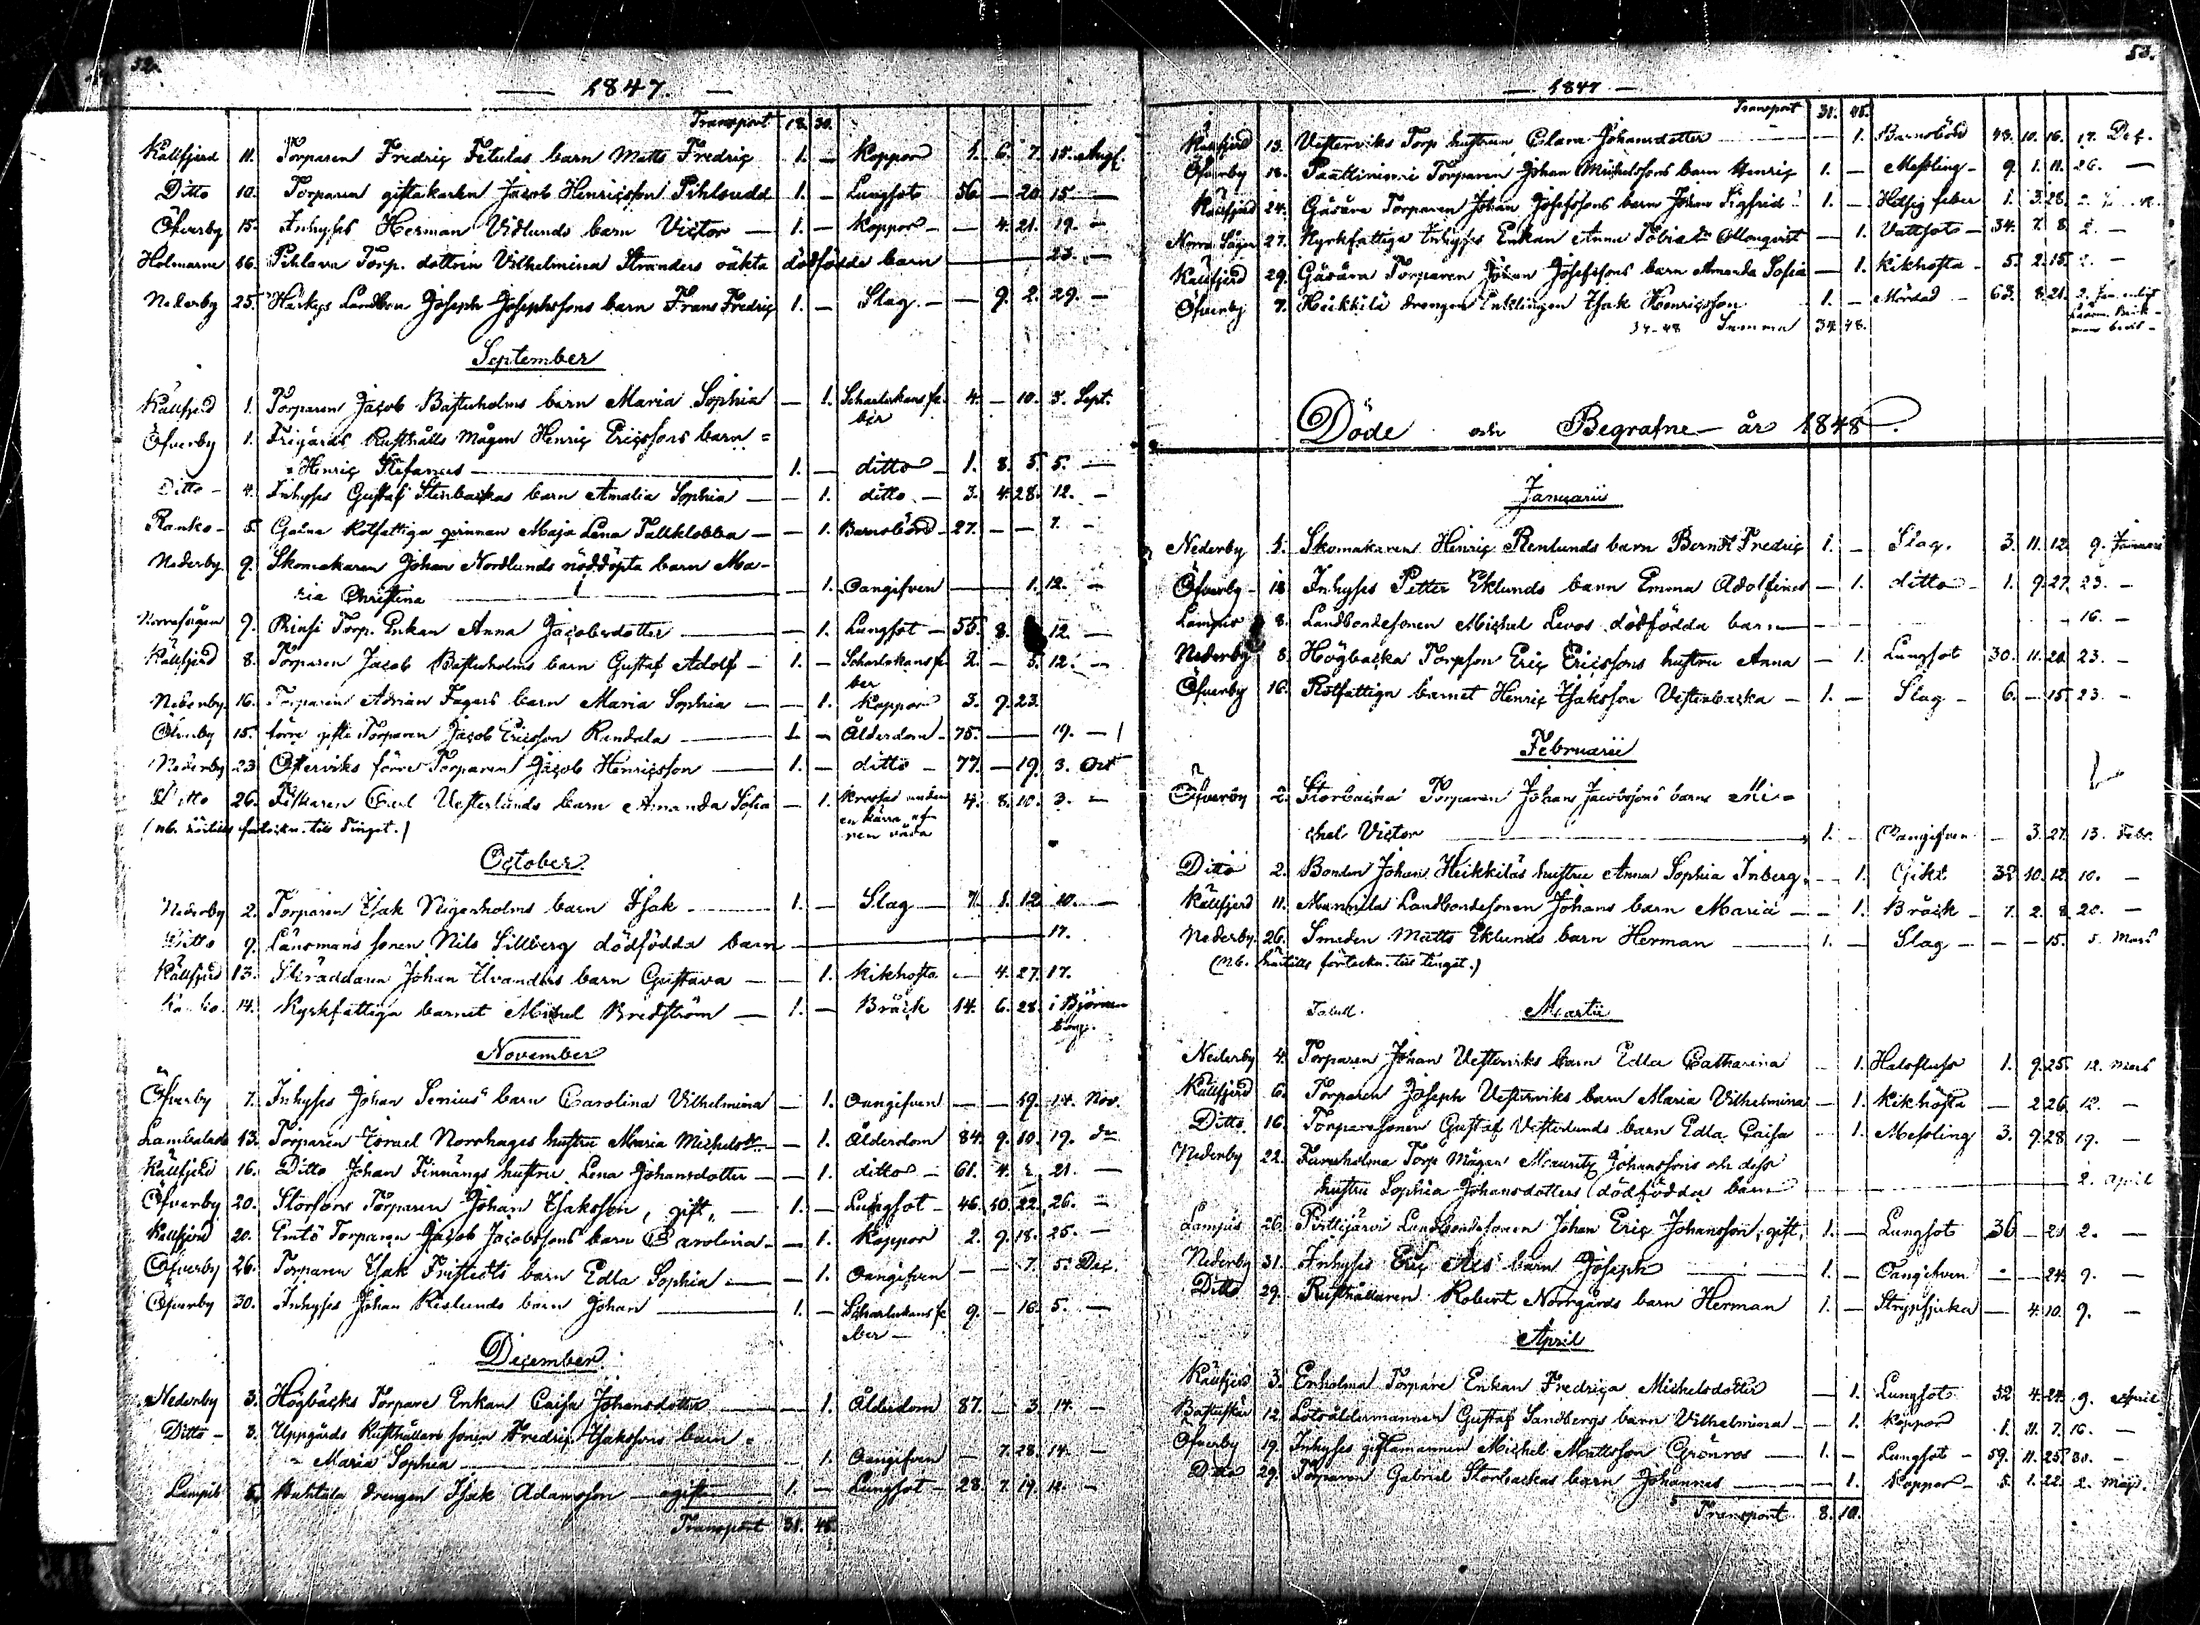 52.
1847.
Transport 18. 30.
Källfjerd 11. Torparen Fredriç Fetulas barn Matts Fredriç 1. — Koppor 1. 6. 7. 15. Aug.
Ditto 10. Torparen giftakarlen Jacob Henriçsson Pihlsudd 1. — Lungsot 56. — 20. 15. —
Öfverby 15. Inhyses Herman Vidlunds barn Victor — 1. — Koppor — — 4. 21. 19. —
Holmarne 16. Pihlava Torp. dottren Vilhelmina Stranders oäkta dödfödde barn — 23. —
Nederby 25. Landbon Joseph Josephssons barn Frans Fredriç 1. — Slag. — — 9. 2. 29. —
September
Källfjerd 1. Torparen Jaçob Bastuholms barn Maria Sophia — 1. Scharlakansfe- 4. — 10. 5. Sept.
ber
Öfverby 1. Frigårds Rusthålls Mågen Henriç Ericssons barn =
= Henriç Stefanus — 1. — ditto — 1. 8. 5. 5. —
Ditto — 4. Inhyses Gustaf Stenbackas barn Amalia Sophia — — 1. ditto — 3. 4. 28. 12. —
Ranko — 5. Rotfattiga qvinnan Maja Lena Tallklobba — — 1. Barnsbörd — 27. — — 7. —
Nederby 9. Skomakaren Johan Nordlunds nöddöpta barn Ma-
ria Christina — 1. Oangifven — — 1. 12. —
Norrasågen 9. Torp. Enkan Anna Jaçobsdotter — — 1. Lungsot — 55. 8. 12. —
Källfjerd 8. Torparen Jacob Bastuholms barn Gustaf Adolf — 1. — Scharlakansfe 2. — 5. 12. —
ber
Nederby 16. Torparen Adrian Fagers barn Maria Sophia — — 1. Koppor 3. 9. 23.
Öfverby 15. förre gifte Torparen Jaçob Ericsson Rendala — 1. — Ålderdom — 75. — — 19. —
Nederby 23. förre Torparen Jaçob Henriçsson — 1. — ditto — 77. — 19. 3. Oct
Ditto 26. Carl Vesterlunds barn Amanda Sofia — 1. Krossad under 4. 8. 10. 3. —
en kärra af
ren våda
(nb. till Tinget.)
October.
Nederby 2. Torparen Isak Nigerholms barn Isak — 1. — Slag — 7. 1. 12. 10. —
Ditto 9. Länsmans sonen Nils Sillberg dödfödda barn — 17.
Källfjerd 13. Skräddaren Johan Uvanders barn Gustava — — 1. Kikhosta — 4. 27. 17.
14. Kyrkfattiga barnet Michel Bredström — 1. — Bråck 14. 6. 28. i Björne
borg.
November
Öfverby 7. Inhyses Johan Senius barn Carolina Vilhelmina — 1. Oangifven — — 19. 14. Nov.
13. Torparen Israel Norrhages hustru Maria Michelsdr — 1. Ålderdom 84. 9. 10. 19. do
Källfjerd 16. Ditto Johan Finnängs hustru Lena Johansdotter — — 1. ditto — 61. 4. 21. —
Öfverby 20. Storfors Torparen Johan Isaksson, gift, — 1. — Lungsot — 46. 10. 22. 26. —
Källfjerd 20. Torparen Jaçob Jaçobssons barn Carolina — — 1. Koppor 2. 9. 18. 26. —
Öfverby 26. Torparen Isak Fristedts barn Edla Sophia — — 1. Oangifven — — 7. 5. Deç.
Öfverby 30. Inhyses Johan Reslunds barn Johan — 1. — Scharlakansfe 9. — 16. 5. —
ber —
Deçember.
Nederby 3. Högbäcks Torpare Enkan Caisa Johansdotter — — 1. Ålderdom 87. — 3. 14. —
Ditto — 3. Uppgårds Rusthållare sonen Fredriç Isakssons barn =
= Maria Sophia — 1. Oangifven — 7. 28. 14. —
Lampis Huhtala drengen Isak Adamsson — ogift — 1. — Lungsot — 28. 7. 19. 12. —
Transport 31. 45.
53.
1847
Transport 31. 45.
Källfjerd 13. Vesterviks Torp. hustrun Clara Johansdotter — 1. Barnsbörd 43. 10. 16. 17. Deç.
Öfverby 18. Torparen Johan Michelssons barn Henriç 1. — Messling — 9. 1. 11. 26. —
Källfjerd 24. Gåsöra Torparen Johan Josefssons barn Johan Sigfrid 1. — Hetsig feber 1. 3. 28. 2.
Norra Sågen 27. Kyrkfattiga Inhyses Enkan Anna Tobiasdr — 1. Vattsot — 34. 7. 8. 2. —
Källfjerd 29. Gåsöra Torparen Johan Josefssons barn Amanda Sofia — 1. Kikhosta — 5. 2. 15. 2. —
Öfverby 7. Heikkilä drengen Enklingen Isak Henriçsson 1. — Mördad — 63. 8. 21. 2. Jan. enligt
34 48 Summa 34. 48.
Döde och Begrafne — år 1848.
Januarii
Nederby 1. Skomakaren Henriç Renlunds barn Berndt Fredriç 1. — Slag. 3. 11. 12. 9. Januarii
Öfverby 18. Inhyses Petter Eklunds barn Emma Adolfina — 1. ditto — 1. 9. 27. 23. —
Lampis 8. Landbondesonen Michel Levos dödfödda barn — 16. —
Nederby 8. Högbacka Torpson Eriç Ericssons hustru Anna — 1. Lungsot 30. 11. 21. 23. —
Öfverby 16. Rotfattiga barnet Henriç Isaksson Vesterbacka — 1. — Slag — 6. — 15. 23. —
Februarii
Öfverby 2. Storbacka Torparen Johans Jacobssons barn Mi-
chel Victor — 1. — Oangifven — 3. 27. 13. Febr.
Ditto 2. Bonden Johan Heikkiläs hustru Anna Sophia Inberg — 1. Gikt 32. 10. 12. 10. —
Källfjerd 11. Mannila Landbondesonen Johans barn Maria — — 1. Bråck — 7. 2. 8. 20. —
Nederby 26. Smeden Matts Eklunds barn Herman — 1. — Slag — — — 15. 5. Mars
(nb. förteckn. till tinget.)
Tabell. Martii
Nederby 4. Torparen Johan Vesterviks barn Edla Catharina — 1. Halsfluss 1. 9. 25. 12. Mars
Källfjerd 6. Torparen Joseph Vesterviks barn Maria Vilhelmina — 1. Kikhosta — 2. 26. 12. —
Ditto 16. Torparesonen Gustaf Vesterlunds barn Edla Caisa — 1. Messling 3. 9. 28. 19. —
Nederby 22. Furuholma Torp Mågen Mauritz Johanssons och dess
hustru Sophia Johansdotters dödfödda barn — 2. April
Lampis 26. Pirttijärvi Landbondesonen Johan Eriç Johansson, gift, 1. — Lungsot 36. — 21. 2. —
Nederby 31. Inhyses Eriç Ais barn Joseph — 1. — Oangifven — — 24. 9. —
Ditto 29. Rusthållaren Robert Norrgårds barn Herman 1. — Strypsjuka — 4. 10. 9. —
April
Källfjerd 3. Enholma Torpare Enkan Fredrica Michelsdotter — 1. Lungsot 52. 4. 24. 9. April
12. Lotsåldermannen Gustaf Sandbergs barn Vilhelmina — — 1. Koppor 1. 11. 7. 16. —
Öfverby 19. Inhyses giftamannen Michel Mattsson Grönroos — 1. — Lungsot — 59. 11. 25. 30. —
Ditto 29. Torparen Gabriel Storbackas barn Johannes — 1. Koppor — 5. 1. 22. 2. Maji.
Transport 8. 10.